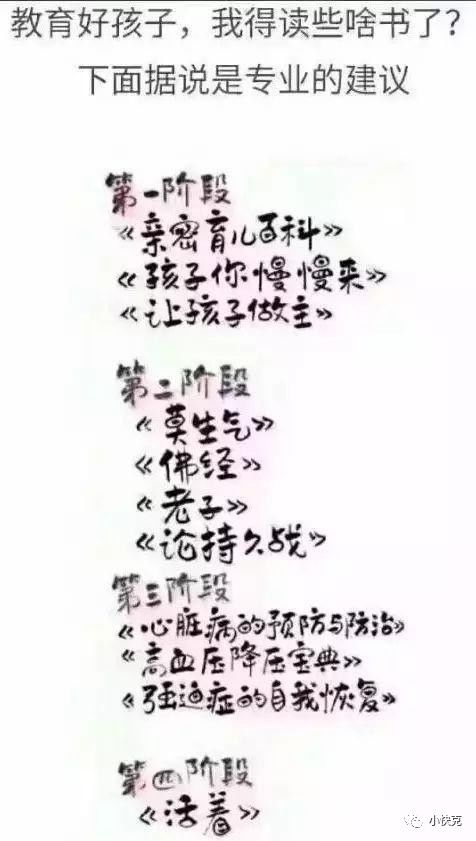 教育好孩子，我得读些啥书了？
下面据说是专业的建议
第一阶段
《亲密育儿百科》
《孩子你慢慢来》
《让孩子做主》
第二阶段
《莫生气》
《佛经》
《老子》
《论持久战》
第三阶段
《心脏病的预防与防治》
《高血压降压宝典》
《强迫症的自我恢复》
第四阶段
《活着》
小快克